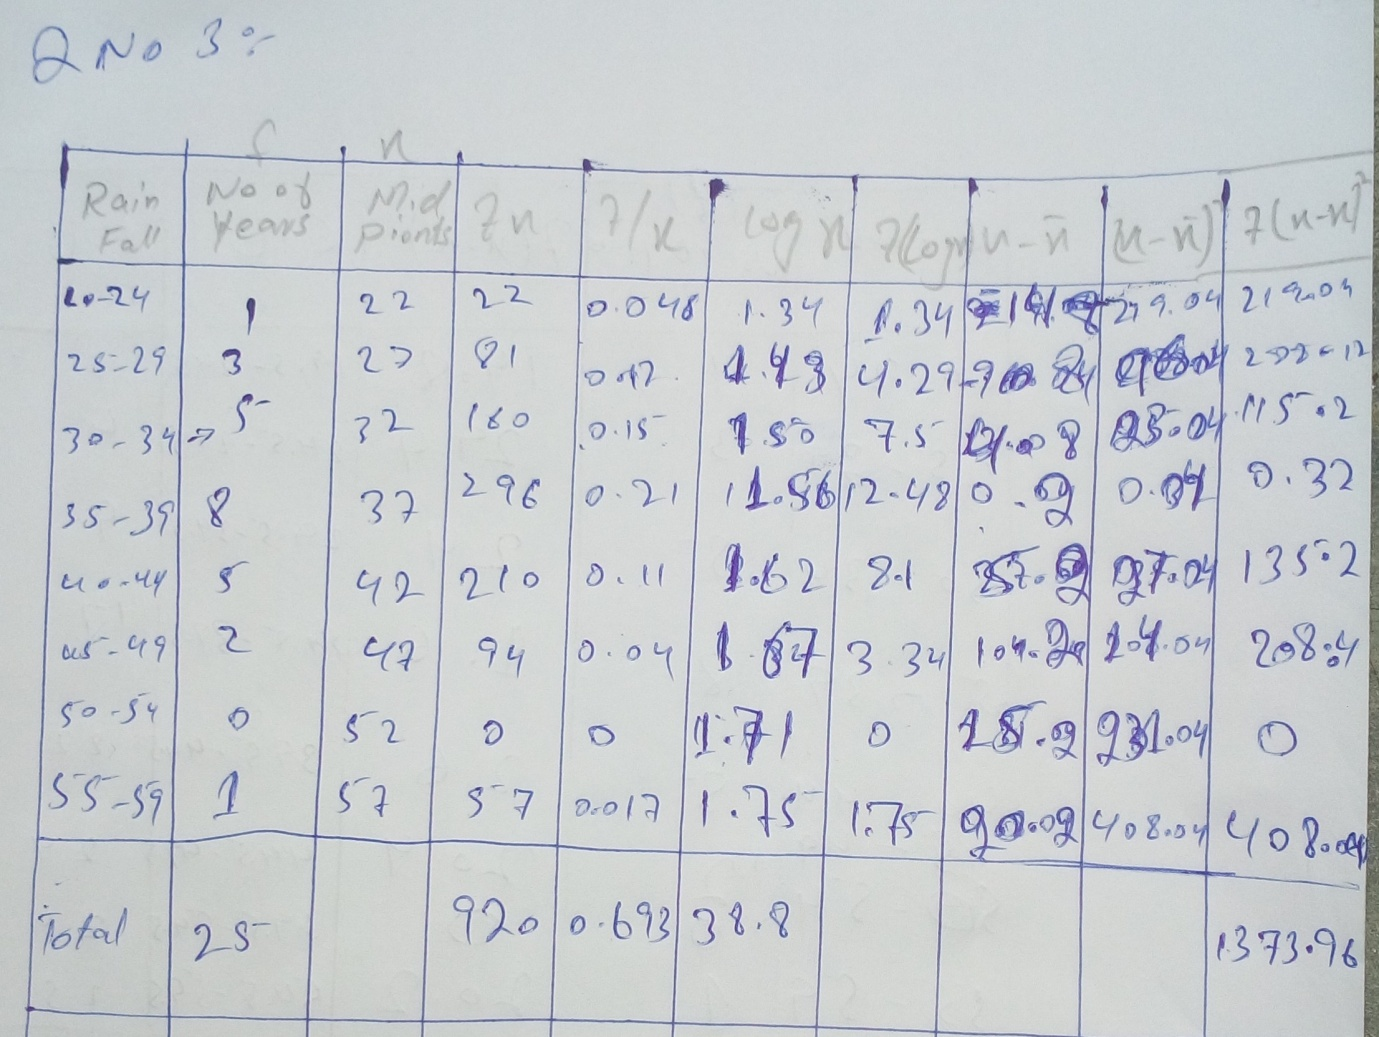 Q No 3:-
f x
Rain Fall No of Years Mid Pionts fx f/x log x f(logx) x-x̄ (x-x̄)² f(x-x̄)²
20-24 1 22 22 0.048 1.34 1.34 219.04 219.04
25-29 3 27 81 0.12 1.43 4.29
30-34 5 32 160 0.15 1.50 7.5 115.2
35-39 8 37 296 0.21 1.56 12.48 0.2 0.04 0.32
40-44 5 42 210 0.11 1.62 8.1 27.04 135.2
45-49 2 47 94 0.04 1.67 3.34 104.04 208.4
50-54 0 52 0 0 1.71 0 15.2 231.04 0
55-59 1 57 57 0.017 1.75 1.75 408.04 408.04
Total 25 920 0.693 38.8 1373.96